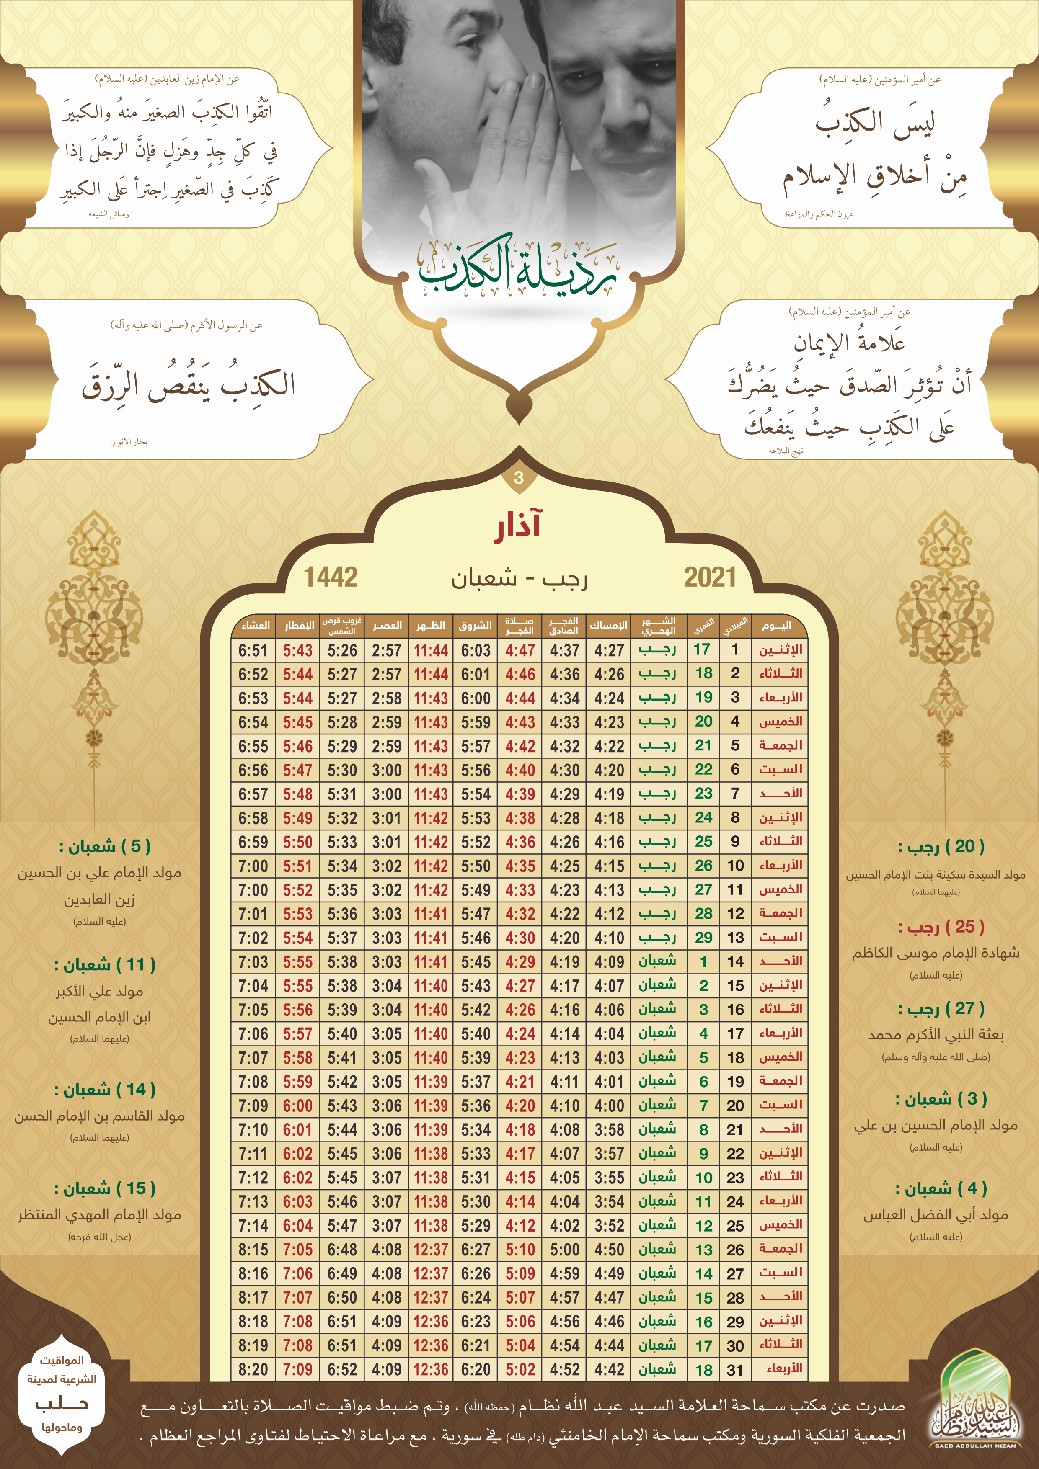 عن أمير المؤمنين (عليه السلام)
ليسَ الكَذِبُ
مِنْ أخلاقِ الإسلام
عيون الحكم والمواعظ
عن الإمام زين العابدين (عليه السلام)
اتّقُوا الكَذِبَ الصغيرَ منهُ والكبيرَ
في كلِّ جِدٍّ وهَزلٍ فإنَّ الرّجُلَ إذا
كَذِبَ في الصّغيرِ اِجترأ عَلى الكبيرِ
وسائل الشيعة
رذيلة الكذب
عن أمير المؤمنين (عليه السلام)
عَلامةُ الإيمانِ
أنْ تُؤثِرَ الصّدقَ حيثُ يَضُرُّكَ
عَلى الكَذِبِ حيثُ يَنفعُكَ
نهج البلاغة
عن الرسول الأكرم (صلى الله عليه وآله)
الكذِبُ يَنقُصُ الرِّزقَ
بحار الأنوار
3
آذار
2021 رجب - شعبان 1442
اليوم الميلادي القمري الشهر الهجري الإمساك الفجر الصادق صلاة الفجر الشروق الظهر العصر غروب قرص الشمس الإفطار العشاء
الإثنين 1 17 رجب 4:27 4:37 4:47 6:03 11:44 2:57 5:26 5:43 6:51
الثلاثاء 2 18 رجب 4:26 4:36 4:46 6:01 11:44 2:57 5:27 5:44 6:52
الأربعاء 3 19 رجب 4:24 4:34 4:44 6:00 11:43 2:58 5:27 5:44 6:53
الخميس 4 20 رجب 4:23 4:33 4:43 5:59 11:43 2:59 5:28 5:45 6:54
الجمعة 5 21 رجب 4:22 4:32 4:42 5:57 11:43 2:59 5:29 5:46 6:55
السبت 6 22 رجب 4:20 4:30 4:40 5:56 11:43 3:00 5:30 5:47 6:56
الأحد 7 23 رجب 4:19 4:29 4:39 5:54 11:43 3:00 5:31 5:48 6:57
الإثنين 8 24 رجب 4:18 4:28 4:38 5:53 11:42 3:01 5:32 5:49 6:58
الثلاثاء 9 25 رجب 4:16 4:26 4:36 5:52 11:42 3:01 5:33 5:50 6:59
الأربعاء 10 26 رجب 4:15 4:25 4:35 5:50 11:42 3:02 5:34 5:51 7:00
الخميس 11 27 رجب 4:13 4:23 4:33 5:49 11:42 3:02 5:35 5:52 7:00
الجمعة 12 28 رجب 4:12 4:22 4:32 5:47 11:41 3:03 5:36 5:53 7:01
السبت 13 29 رجب 4:10 4:20 4:30 5:46 11:41 3:03 5:37 5:54 7:02
الأحد 14 1 شعبان 4:09 4:19 4:29 5:45 11:41 3:03 5:38 5:55 7:03
الإثنين 15 2 شعبان 4:07 4:17 4:27 5:43 11:40 3:04 5:38 5:55 7:04
الثلاثاء 16 3 شعبان 4:06 4:16 4:26 5:42 11:40 3:04 5:39 5:56 7:05
الأربعاء 17 4 شعبان 4:04 4:14 4:24 5:40 11:40 3:05 5:40 5:57 7:06
الخميس 18 5 شعبان 4:03 4:13 4:23 5:39 11:40 3:05 5:41 5:58 7:07
الجمعة 19 6 شعبان 4:01 4:11 4:21 5:37 11:39 3:05 5:42 5:59 7:08
السبت 20 7 شعبان 4:00 4:10 4:20 5:36 11:39 3:06 5:43 6:00 7:09
الأحد 21 8 شعبان 3:58 4:08 4:18 5:34 11:39 3:06 5:44 6:01 7:10
الإثنين 22 9 شعبان 3:57 4:07 4:17 5:33 11:38 3:06 5:45 6:02 7:11
الثلاثاء 23 10 شعبان 3:55 4:05 4:15 5:31 11:38 3:07 5:45 6:02 7:12
الأربعاء 24 11 شعبان 3:54 4:04 4:14 5:30 11:38 3:07 5:46 6:03 7:13
الخميس 25 12 شعبان 3:52 4:02 4:12 5:29 11:38 3:07 5:47 6:04 7:14
الجمعة 26 13 شعبان 4:50 5:00 5:10 6:27 12:37 4:08 6:48 7:05 8:15
السبت 27 14 شعبان 4:49 4:59 5:09 6:26 12:37 4:08 6:49 7:06 8:16
الأحد 28 15 شعبان 4:47 4:57 5:07 6:24 12:37 4:08 6:50 7:07 8:17
الإثنين 29 16 شعبان 4:46 4:56 5:06 6:23 12:36 4:09 6:51 7:08 8:18
الثلاثاء 30 17 شعبان 4:44 4:54 5:04 6:21 12:36 4:09 6:51 7:08 8:19
الأربعاء 31 18 شعبان 4:42 4:52 5:02 6:20 12:36 4:09 6:52 7:09 8:20
( 20 ) رجب :
مولد السيدة سكينة بنت الإمام الحسين
(عليهما السلام)
( 25 ) رجب :
شهادة الإمام موسى الكاظم
(عليه السلام)
( 27 ) رجب :
بعثة النبي الأكرم محمد
(صلى الله عليه وآله وسلم)
( 3 ) شعبان :
مولد الإمام الحسين بن علي
(عليه السلام)
( 4 ) شعبان :
مولد أبي الفضل العباس
(عليه السلام)
( 5 ) شعبان :
مولد الإمام علي بن الحسين
زين العابدين
(عليه السلام)
( 11 ) شعبان :
مولد علي الأكبر
ابن الإمام الحسين
(عليهما السلام)
( 14 ) شعبان :
مولد القاسم بن الإمام الحسن
(عليهما السلام)
( 15 ) شعبان :
مولد الإمام المهدي المنتظر
(عجل الله فرجه)
المواقيت
الشرعية لمدينة
حلب
وماحولها
صدرت عن مكتب سماحة العلامة السيد عبد الله نظام (حفظه الله) ، وتم ضبط مواقيت الصلاة بالتعاون مع
الجمعية الفلكية السورية ومكتب سماحة الإمام الخامنئي (دام ظله) في سورية ، مع مراعاة الاحتياط لفتاوى المراجع العظام .
SAED ABDULLAH NIZAM